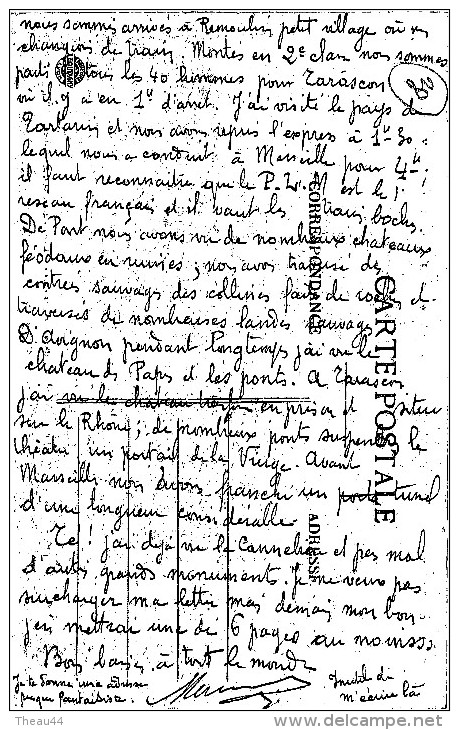 nous sommes arrivés à Remoulin petit village où on
changions de train. Montés en 2e classe nous sommes
parti tous les 40 hommes pour Tarascon
28
où il y a eu 1h d'arrêt. J'ai visité le pays de
Tartarin et nous avons repris l'express à 1h 30
lequel nous a conduit à Marseille pour 4h
il faut reconnaitre que le P.L.M est le 1r
reseau français et il vaut les trains boches.
De Pont nous avons vu de nombreux chateaux
féodaux en ruines; nous avons traversé des
contrées sauvages des collines de roches et
traversés de nombreuses landes sauvages
D'Avignon pendant longtemps j'ai vu le
chateau des Papes et les ponts. A Tarascon
j'ai vu le chateau en prison et situé
sur le Rhône; de nombreux ponts suspendus le
théatre un portait de la Vierge. Avant
Marseille nous avons franchi un tunel
d'une longueur considérable.
Té! j'ai déjà vu la Cannebière et pas mal
d'autres grands monuments. Je ne veux pas
surcharger ma lettre mais demain mon bon
j'en mettrai une de 6 pages au moinsss
Bons baisers à tout le monde
Je te donne une adresse
presque fantaisiste
Inutile de
m'écrire là
CORRESPONDANCE
CARTE POSTALE
ADRESSE
Theau44
delcampe.net